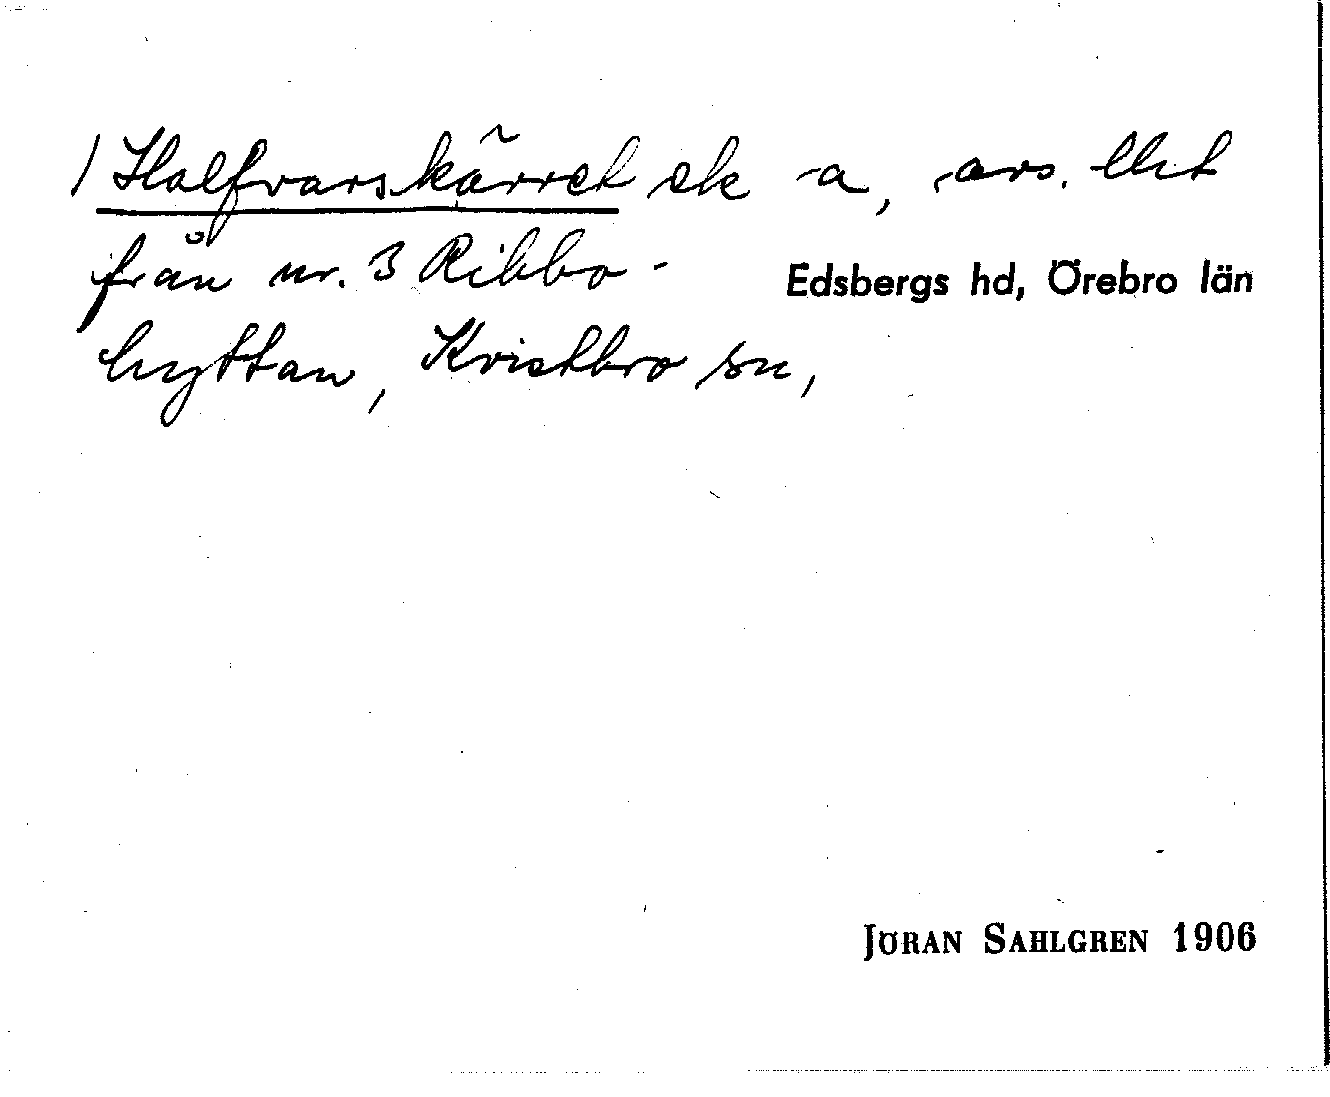 / Halfvarskärret ek -a, avs. lht
från nr. 3 Ribbo-
hyttan, Kvistbro sn,
Edsbergs hd, Örebro län
JÖRAN SAHLGREN 1906